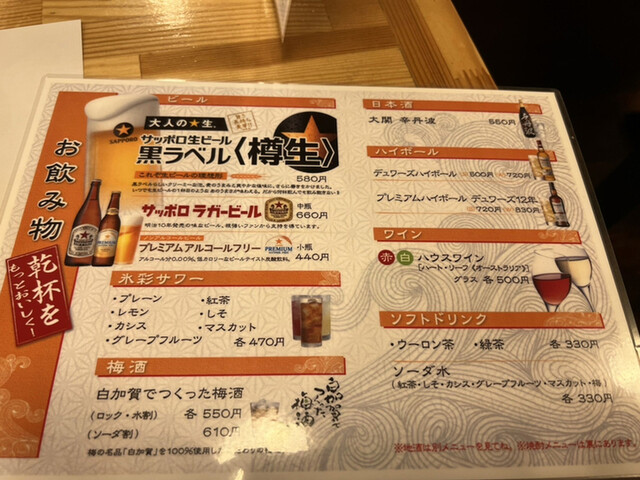 お飲み物
乾杯を
もっとおいしく!
ビール
大人の★生。
SAPPORO
サッポロ生ビール
黒ラベル〈樽生〉
これぞ生ビールの理想形
580円
サッポロ ラガービール 中瓶
660円
ノンアルコールビール
プレミアム アルコールフリー 小瓶
PREMIUM
440円
氷彩サワー
・プレーン ・紅茶
・レモン ・しそ
・カシス ・マスカット
・グレープフルーツ 各470円
梅酒
白加賀でつくった梅酒
(ロック・水割) 各550円
(ソーダ割) 610円
梅の名品「白加賀」を100%使用した
白加賀で
つくった
梅酒
日本酒
大関 辛丹波 550円
ハイボール
デュワーズハイボール 500円 720円
プレミアムハイボール デュワーズ12年
720円 830円
ワイン
赤 白 ハウスワイン
[ハート・リーフ《オーストラリア》]
グラス 各500円
ソフトドリンク
・ウーロン茶 ・緑茶 各330円
ソーダ水
(紅茶・しそ・カシス・グレープフルーツ・マスカット・梅)
各330円
※地酒は別メニューを見てね。※焼酎メニューは裏にあります。